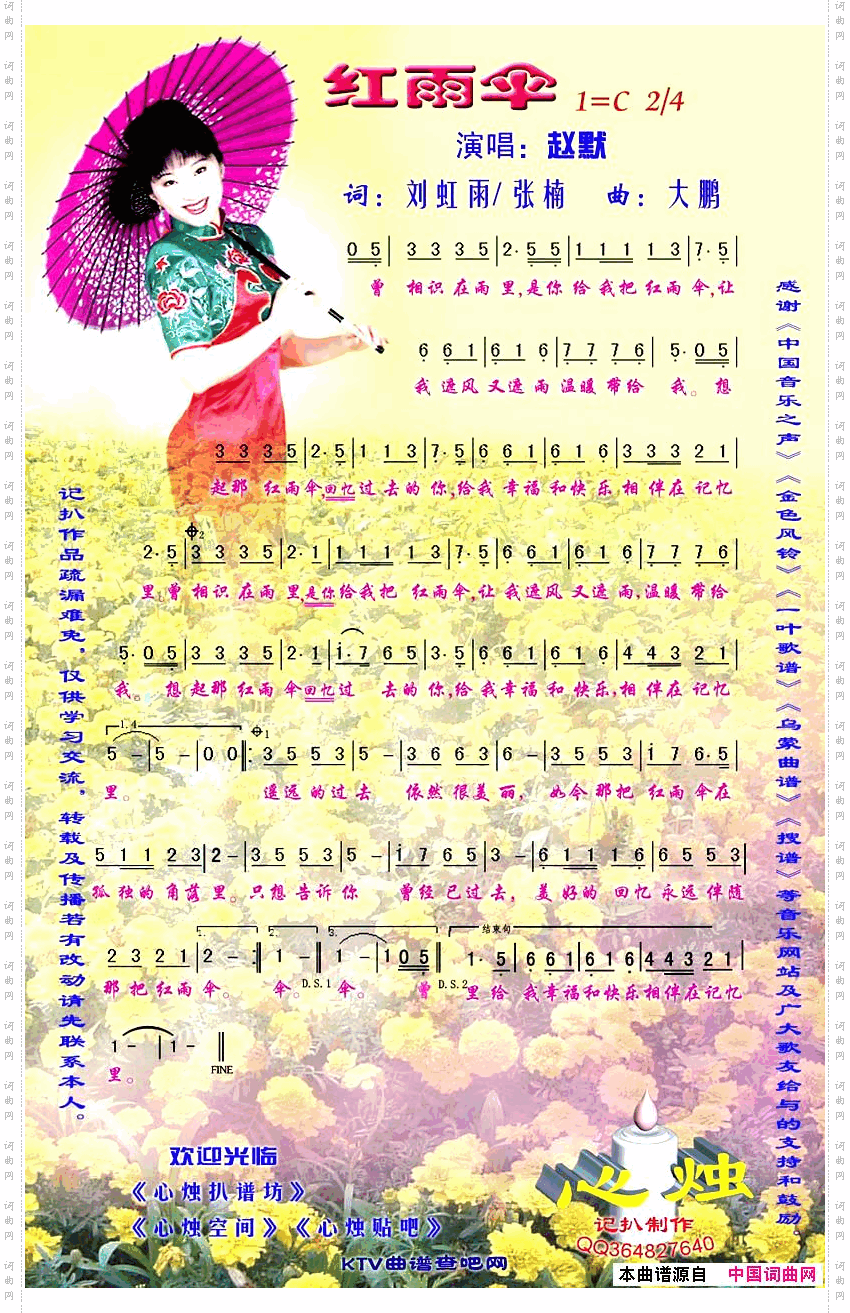 红雨伞 1=C 2/4
演唱：赵默
词：刘虹雨/张楠 曲：大鹏
0 5 | 3 3 3 5 | 2· 5 5 | 1 1 1 1 3 | 7· 5 |
曾 相识在雨里,是你给我把红雨伞,让
6 6 1 | 6 1 6 | 7 7 7 6 | 5· 0 5 |
我遮风又遮雨温暖带给 我。想
3 3 3 5 | 2· 5 | 1 1 3 | 7· 5 | 6 6 1 | 6 1 6 | 3 3 3 2 1 |
起那红雨伞回忆过去的你,给我幸福和快乐,相伴在记忆
2
2· 5 | 3 3 3 5 | 2· 1 | 1 1 1 1 3 | 7· 5 | 6 6 1 | 6 1 6 | 7 7 7 6 |
里,曾相识在雨里,是你给我把红雨伞,让我遮风又遮雨,温暖带给
5· 0 5 | 3 3 3 5 | 2· 1 | i· 7 6 5 | 3· 5 | 6 6 1 | 6 1 6 | 4 4 3 2 1 |
我。想起那红雨伞回忆过 去的你,给我幸福和快乐,相伴在记忆
1.4
1
5 – | 5 – | 0 0 :‖ 3 5 5 3 | 5 – | 3 6 6 3 | 6 – | 3 5 5 3 | i 7 6· 5 |
里。 遥远的过去 依然很美丽, 如今那把红雨伞在
5 1 1 2 3 | 2 – | 3 5 5 3 | 5 – | i 7 6 5 | 3 – | 6 1 1 1 6 | 6 5 5 3 |
孤独的角落里。只想告诉你 曾经已过去, 美好的回忆永远伴随
1. 2. 3. 结束句
2 3 2 1 | 2 – :‖ 1 – :‖ 1 – | 1 0 5 ‖ 1· 5 | 6 6 1 | 6 1 6 | 4 4 3 2 1 |
那把红雨伞。 伞。D.S.1 伞。 曾 D.S.2 里给我幸福和快乐相伴在记忆
1 – | 1 – ‖
里。 FINE
记扒作品疏漏难免，仅供学习交流，转载及传播若有改动请先联系本人。
感谢《中国音乐之声》《金色风铃》《一叶歌谱》《乌蒙曲谱》《搜谱》等音乐网站及广大歌友给与的支持和鼓励。
欢迎光临
《心烛扒谱坊》
《心烛空间》《心烛贴吧》
心烛
记扒制作
QQ364827640
KTV曲谱查吧网
本曲谱源自 中国词曲网